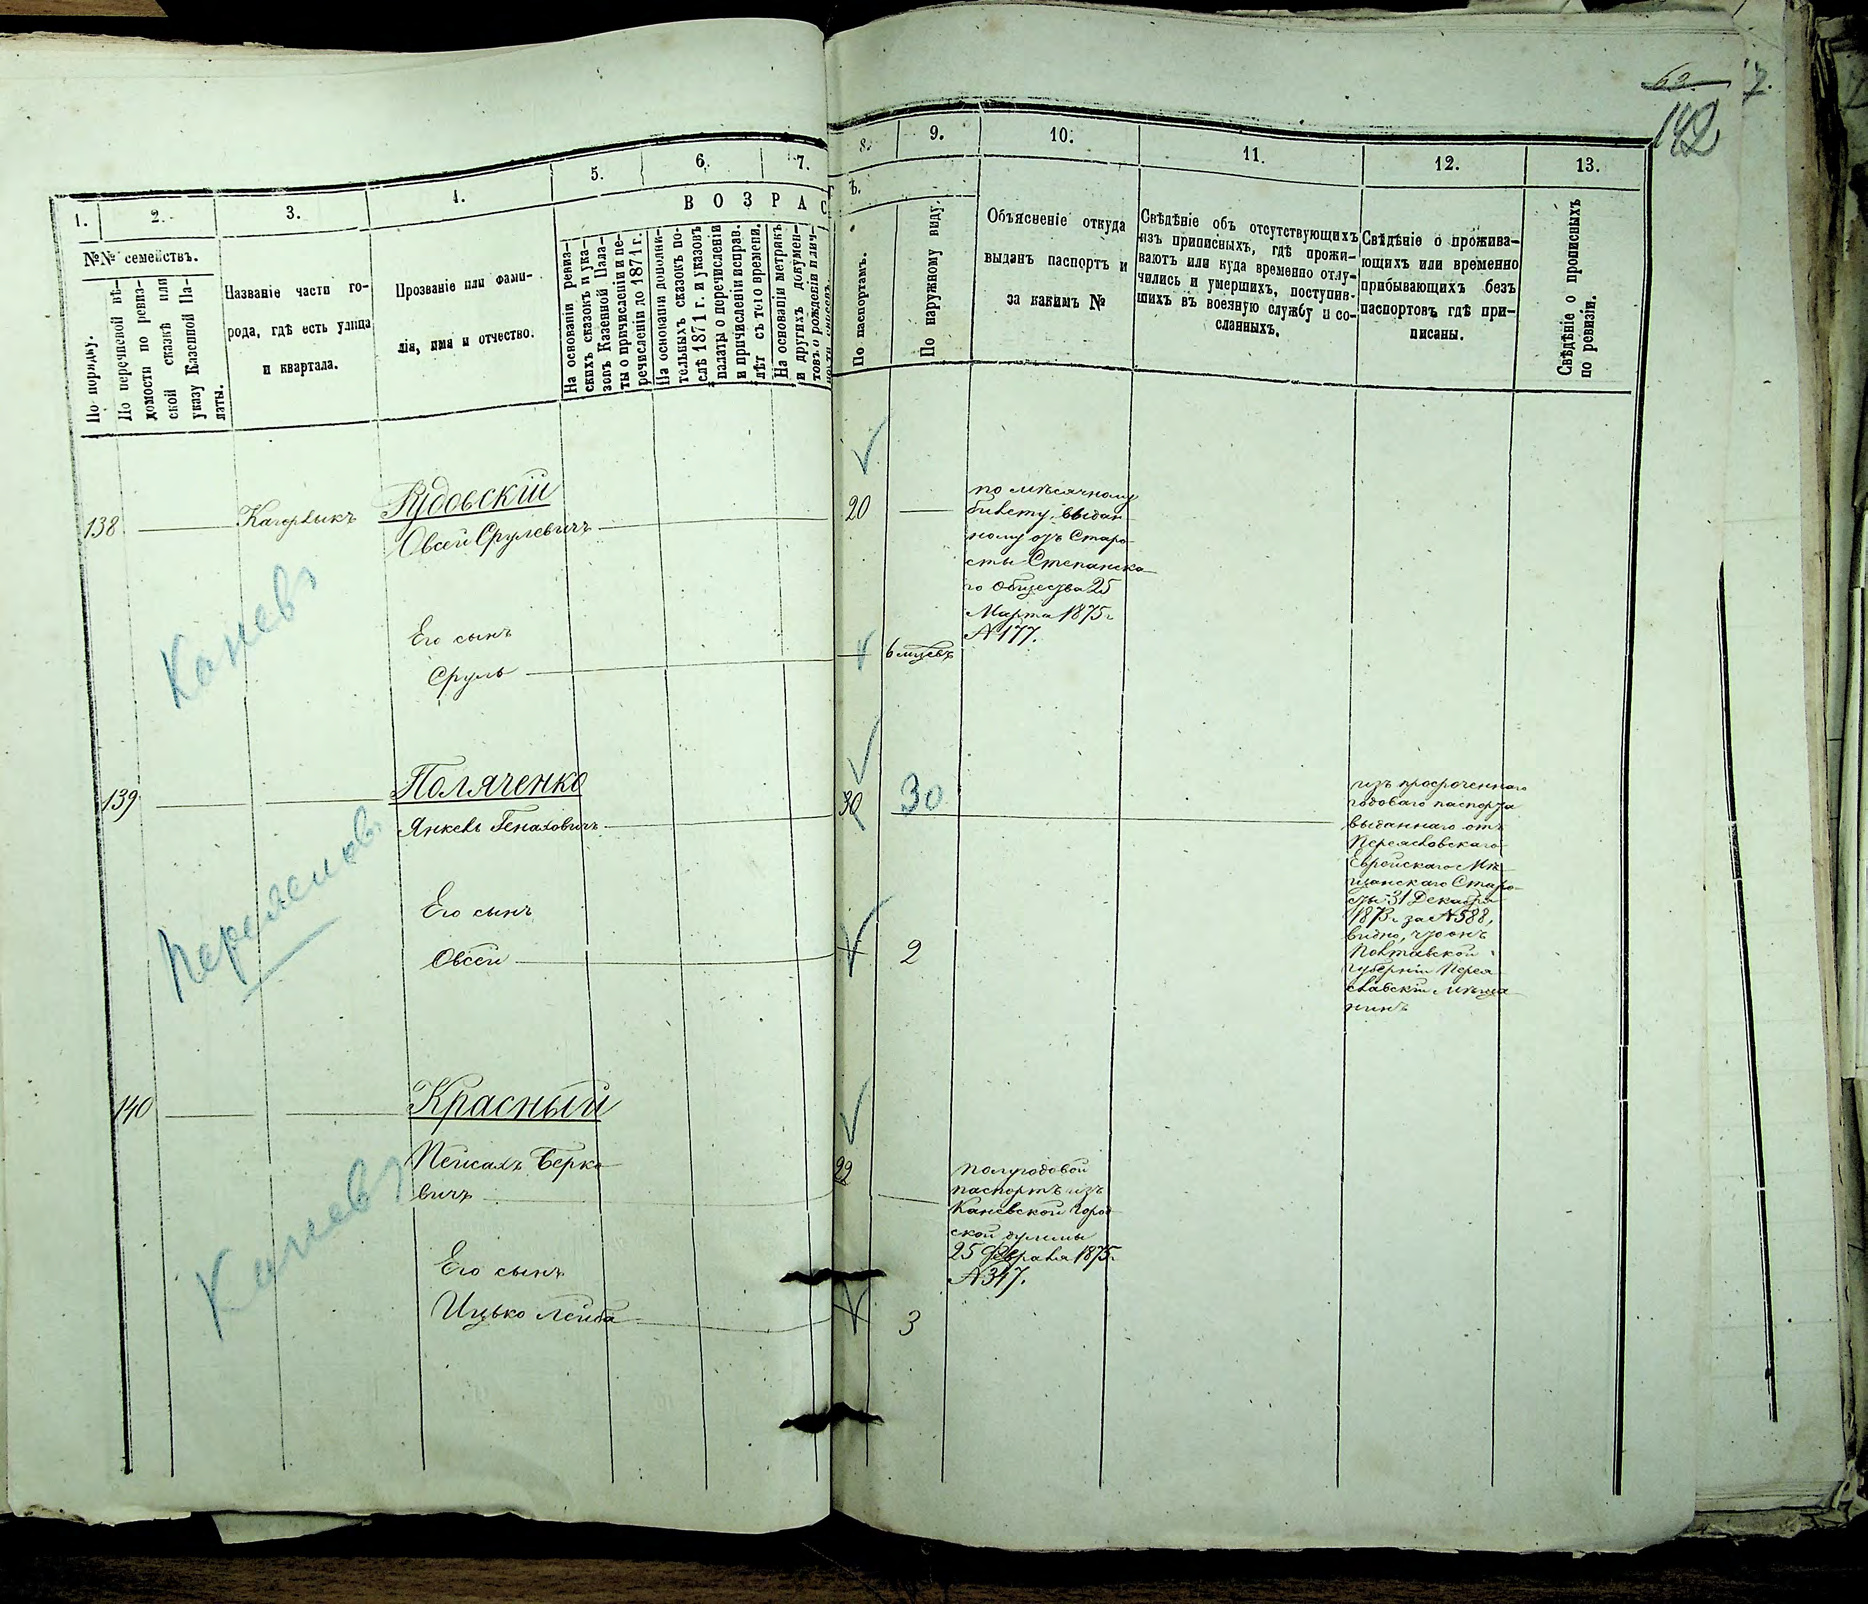 63
7.
142
1.
2.
3.
4.
5.
6.
7.
8.
9.
10.
11.
12.
13.
ВОЗРАС
Т Ъ.
№№ семействъ.
По порядку.
По перечневой вѣ-
домости по ревиз-
ской сказкѣ или
указу Казенной Па-
латы.
Названіе части го-
рода, гдѣ есть улица
и квартала.
Прозваніе или фами-
лія, имя и отчество.
На основаніи ревиз-
скихъ сказокъ и ука-
зовъ Казенной Пала-
ты о причисленіи и пе-
речисленіи до 1871 г.
На основаніи дополни-
тельныхъ сказокъ по-
слѣ 1871 г. и указовъ
палаты о перечисленіи
и причисленіи исправ.
лѣт съ того времени.
На основаніи метрикъ
и другихъ докумен-
товъ о рожденіи
По паспортамъ.
По наружному виду.
Объясненіе откуда
выданъ паспортъ и
за какимъ №
Свѣдѣніе объ отсутствующихъ
изъ приписныхъ, гдѣ прожи-
ваютъ или куда временно отлу-
чились и умершихъ, поступив-
шихъ въ военную службу и со-
сланныхъ.
Свѣдѣніе о прожива-
ющихъ или временно
прибывающихъ безъ
паспортовъ гдѣ при-
писаны.
Свѣдѣніе о прописныхъ
по ревизіи.
138
Кагорлыкъ
Рудовскій
Овсей Срулевичъ
20
по мѣсячному
билету, выдан
ному отъ Старо
сты Степанска
го общества 25
Марта 1875 г
№177.
Каневъ
Его сынъ
Сруль
6 мцевъ
139
Поляченко
Янкель Генахович
30
30
изъ просроченнаго
годоваго паспорта
выданнаго отъ
Переясловскаго
Еврейскаго Мѣ
щанскаго Старо
сты 31 Декабря
1873 г. за №588,
видно, что онъ
Полтавской
губерніи Перея
славскій мѣща
нинъ
Переяславъ
Его сынъ
Овсей
2
140
Красный
Пейсахъ Берко
вичъ
22
полугодовой
паспортъ изъ
Каневской город
ской думы
25 февраля 1875 г
№347.
Каневъ
Его сынъ
Ицько Лейба
3